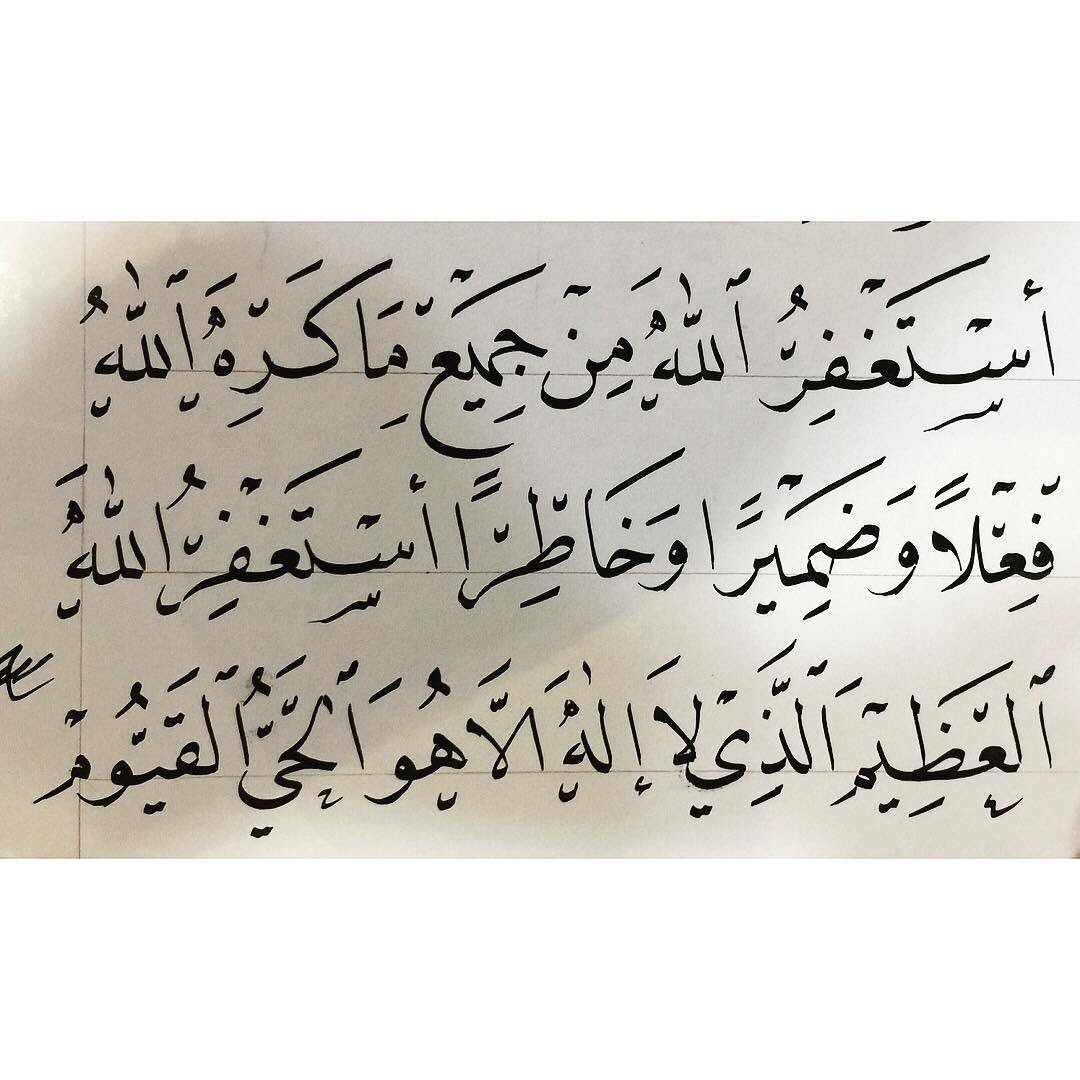 أَسْتَغْفِرُ ٱللّٰهَ مِنْ جَمِيْعِ مَا كَرِهَ ٱللّٰهُ
فِعْلًا وَضَمِيْرًا وَخَاطِرًا أَسْتَغْفِرُ اللّٰهَ
ٱلْعَظِيْمَ ٱلَّذِي لَا إِلٰهَ الَّا هُوَ ٱلْحَيُّ الْقَيُّوْمُ